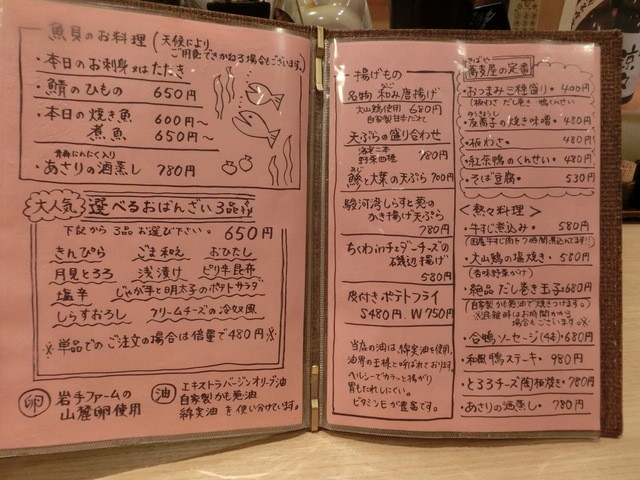 ・魚貝のお料理(天候により
ご用意できかねる場合もございます。)
・本日のお刺身又はたたき
・鯖のひもの 650円
・本日の焼き魚 600円〜
煮魚 650円〜
青森にんにく入り
・あさりの酒蒸し 780円
大人気 選べるおばんざい3品
下記から3品お選び下さい。 650円
きんぴら ごま和え おひたし
月見とろろ 浅漬け ピリ辛昆布
塩辛 じゃが芋と明太子のポテトサラダ
しらすおろし クリームチーズの冷奴風
※単品でのご注文の場合は倍量で480円※
卵 岩手ファームの
山麓卵使用
油 エキストラバージンオリーブ油
自家製かも葱油
綿実油 を使い分けています。
・揚げもの
名物 和み唐揚げ
大山鶏使用 680円
自家製甘辛だれで
天ぷらの盛り合わせ
海老二本
野菜四種 980円
鯵と大葉の天ぷら 700円
駿河湾しらすと葱の
かき揚げ天ぷら
780円
ちくわinチェダーチーズの
磯辺揚げ
580円
皮付きポテトフライ
S480円 W750円
当店の油は、綿実油を使用。
油界の王様と呼ばれております。
ヘルシーでカラッと揚がり
胃もたれしにくい。
ビタミンEが豊富です。
そばや
蕎麦屋の定番
・おつまみ三種盛り・ 400円
(板わさ・だし巻き・鴨くんせい)
・友蕎子の焼き味噌・ 480円
・板わさ・ 480円
・紅茶鴨のくんせい・ 480円
・そば豆腐・ 530円
<熱々料理>
・牛すじ煮込み・ 580円
(国産牛すじ肉を7時間煮込んでます!!)
・大山鶏の塩焼き・ 580円
(香味野菜がけ)
・絶品 だし巻き玉子・680円
(自家製かも葱油で焼きつけます。)
※混雑時はお時間かかる
場合もございます。※
・合鴨ソーセージ(4本)・680円
・和風 鴨ステーキ・ 980円
・とろろチーズ陶板焼き・780円
・あさりの酒蒸し・ 780円